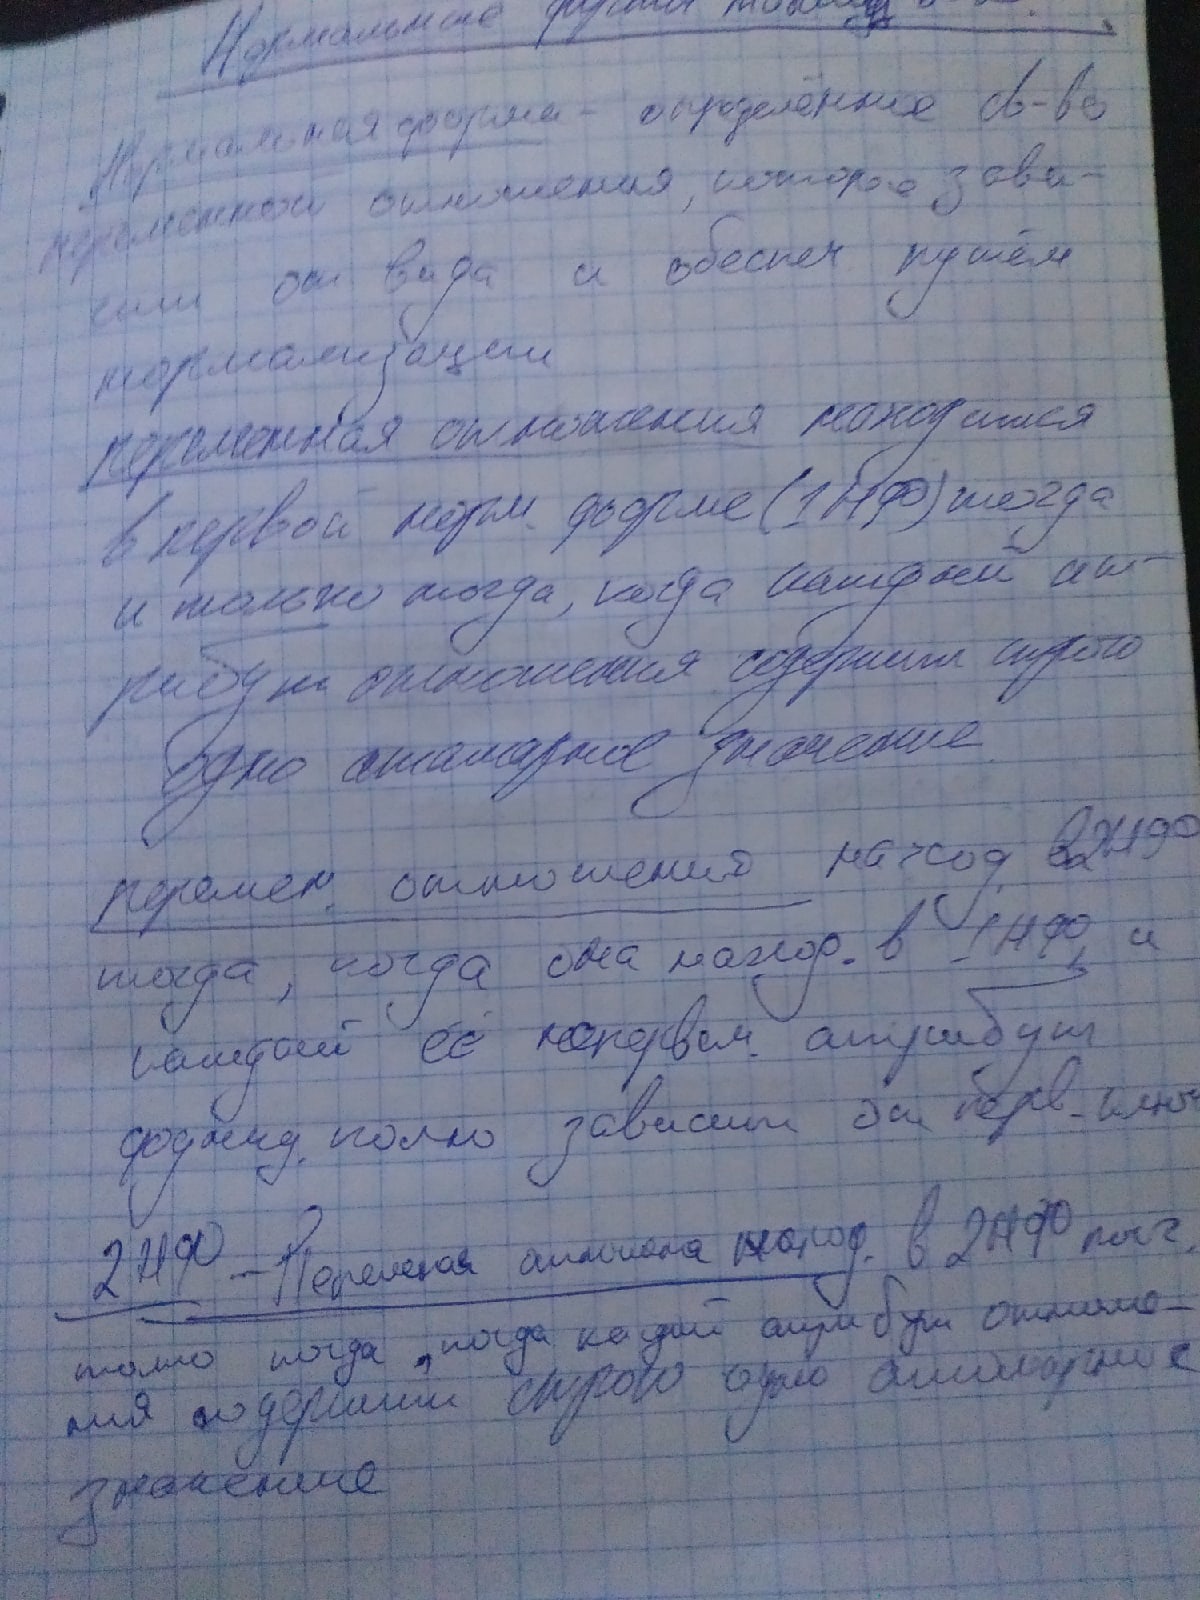 Нормальные формы
Нормальная форма - определённые св-ва
переменной отношения, которое зави-
сит от вида и обеспеч путём
нормализации
переменная отношения находится
в первой норм. форме (1НФ) тогда
и только тогда, когда каждый ат-
рибут отношения содержит строго
одно атамарное значение
перемен. отношения наход. в 2НФ
тогда, когда она наход. в 1НФ, и
каждый её неперввм. атрибут
функц. полно зависит от перв. ключ
2НФ - Перемная отношена наход. в 2НФ
толко тогда, когда каждый атрибут отноше-
ния содержит строго одно атомарное
значение